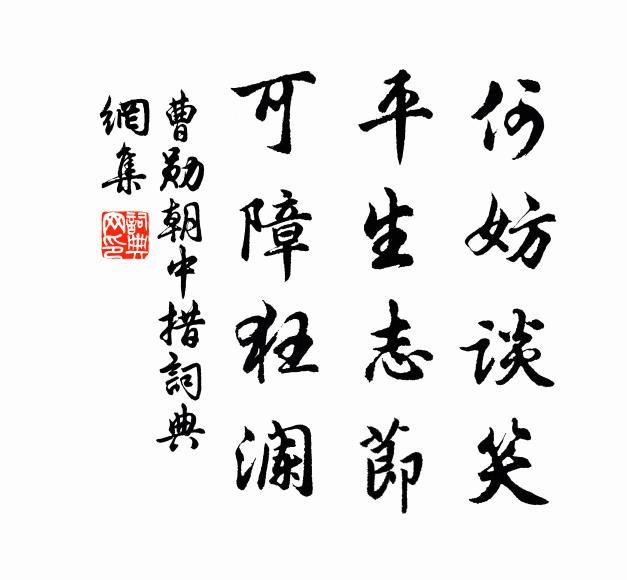 何妨談笑
平生志節
可障狂瀾
曹勛朝中措詞典
網集
詞典網印